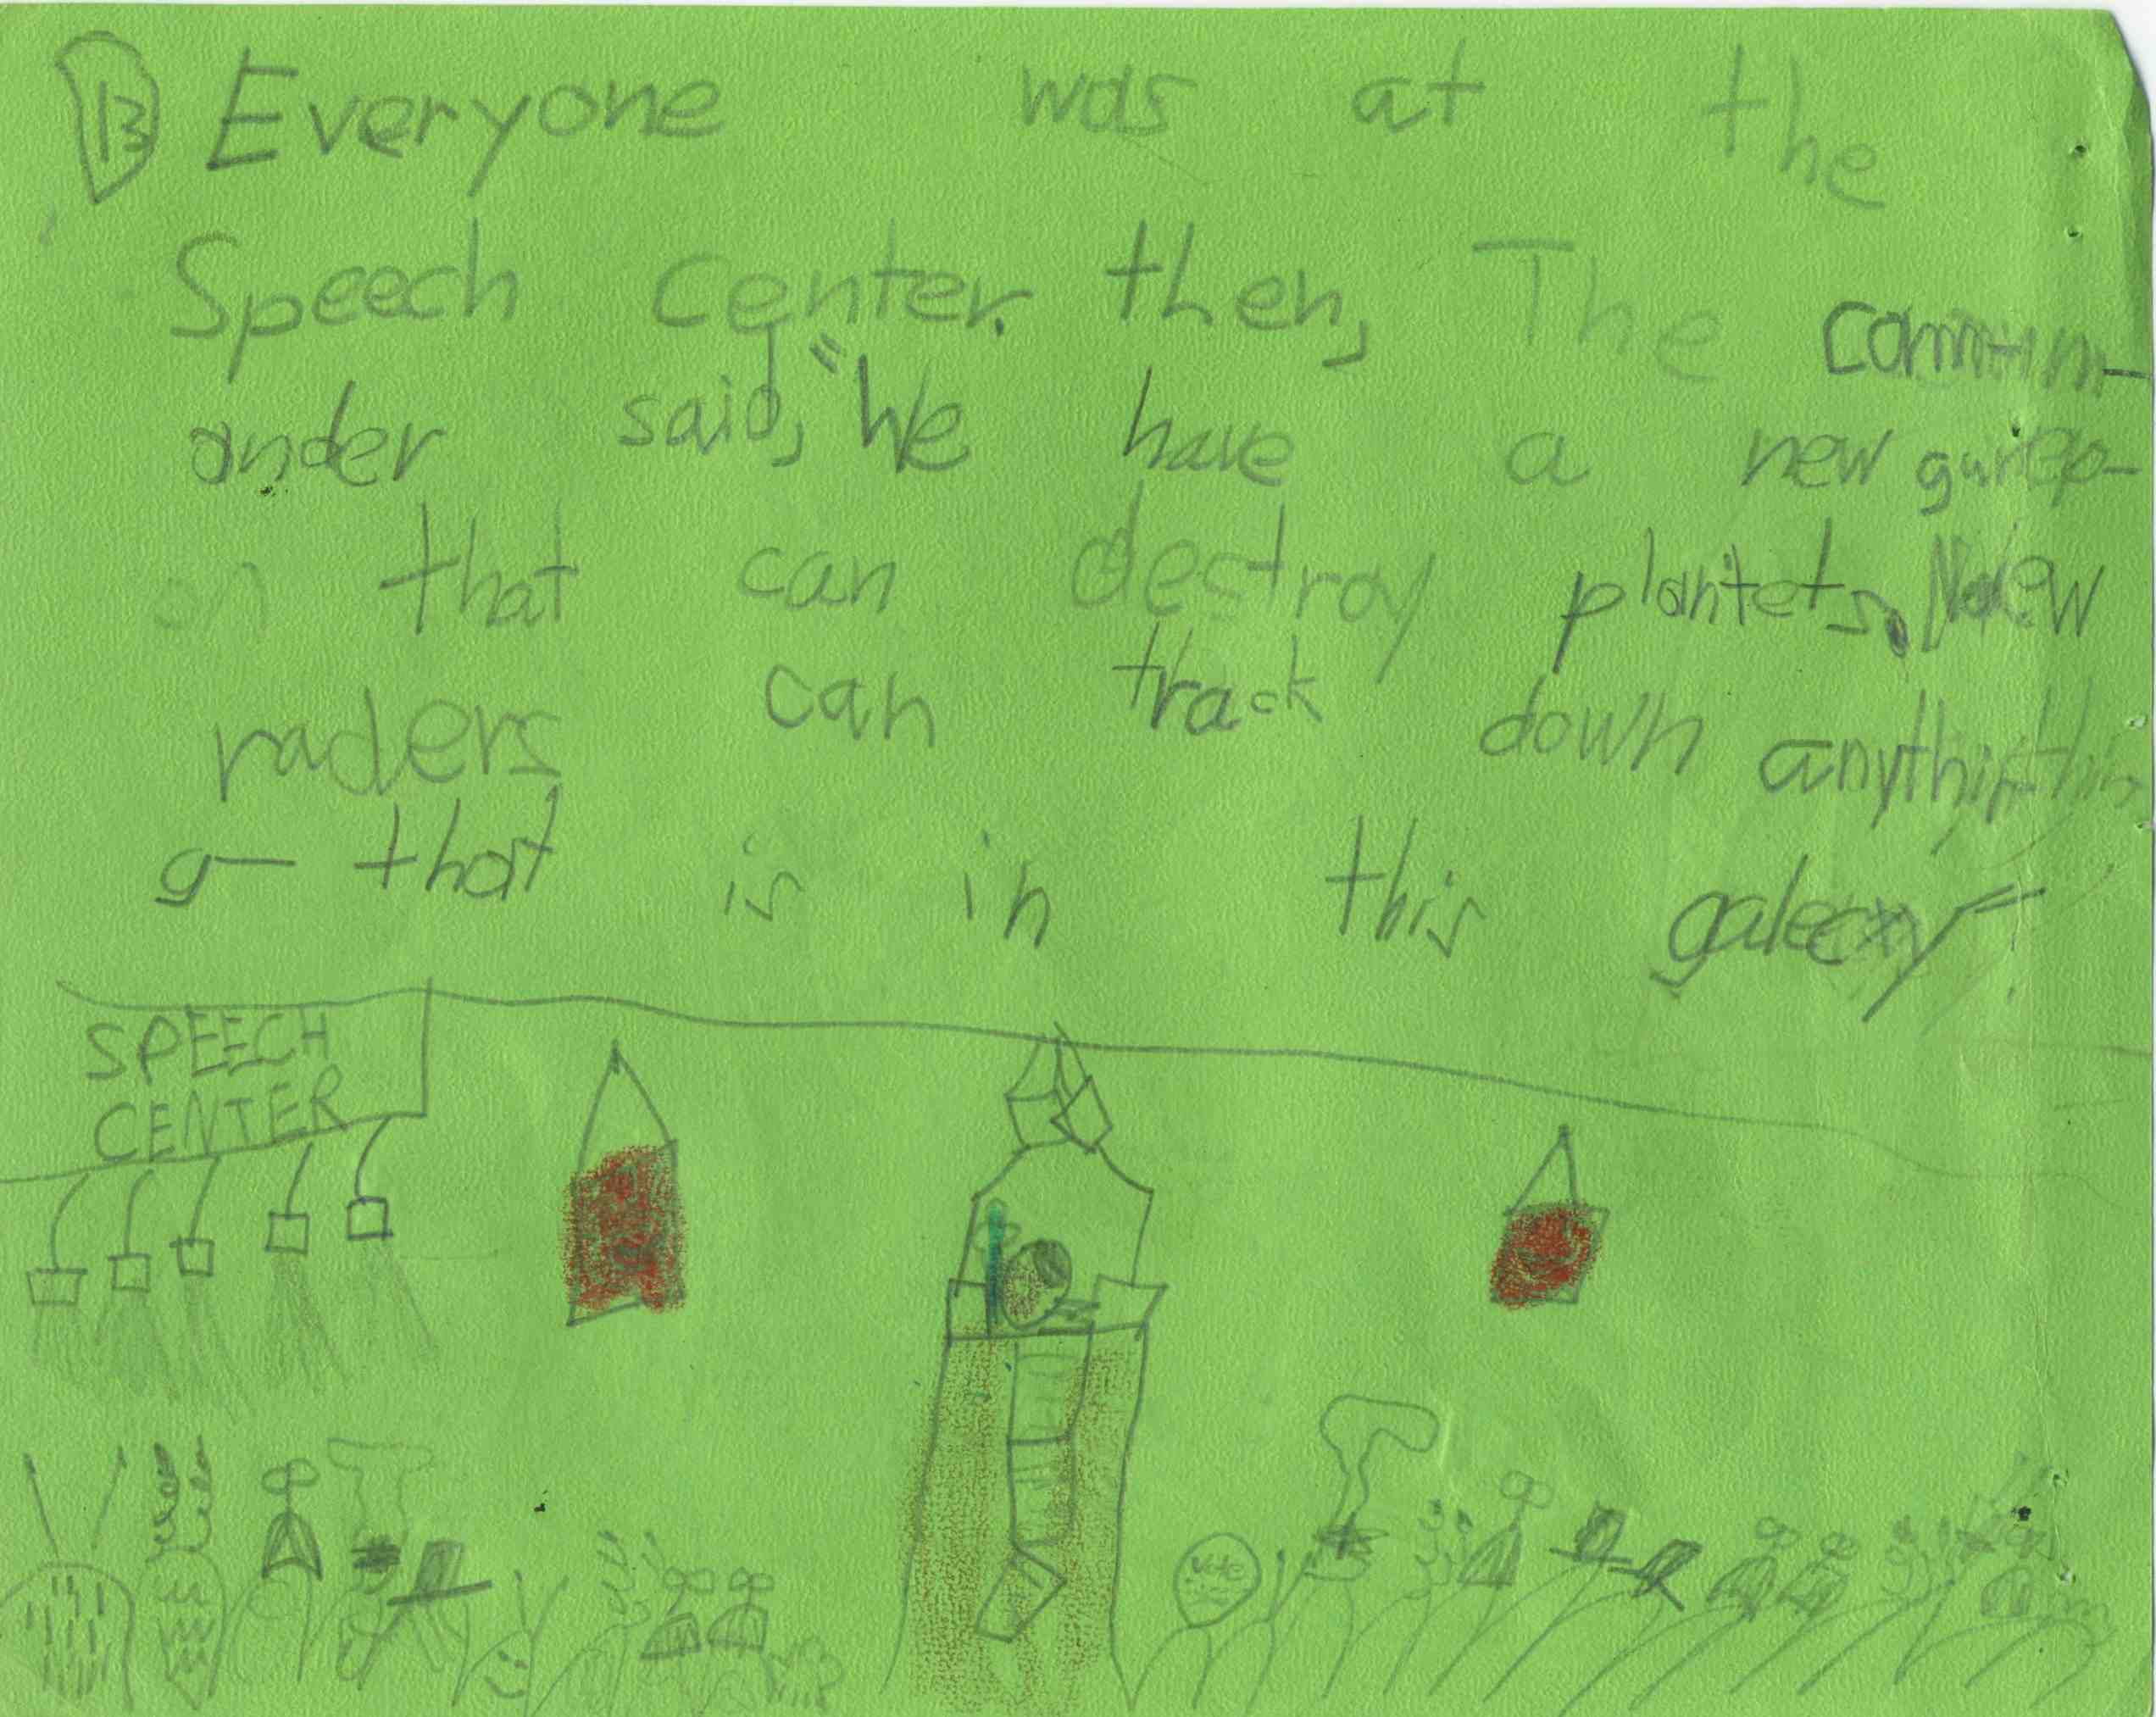 13 Everyone was at the
Speech center. then, The comm-
ander said, "We have a new
on that can destroy plantets. New
raders can track down anythin
g that is in this galecxy"
SPEECH
CENTER